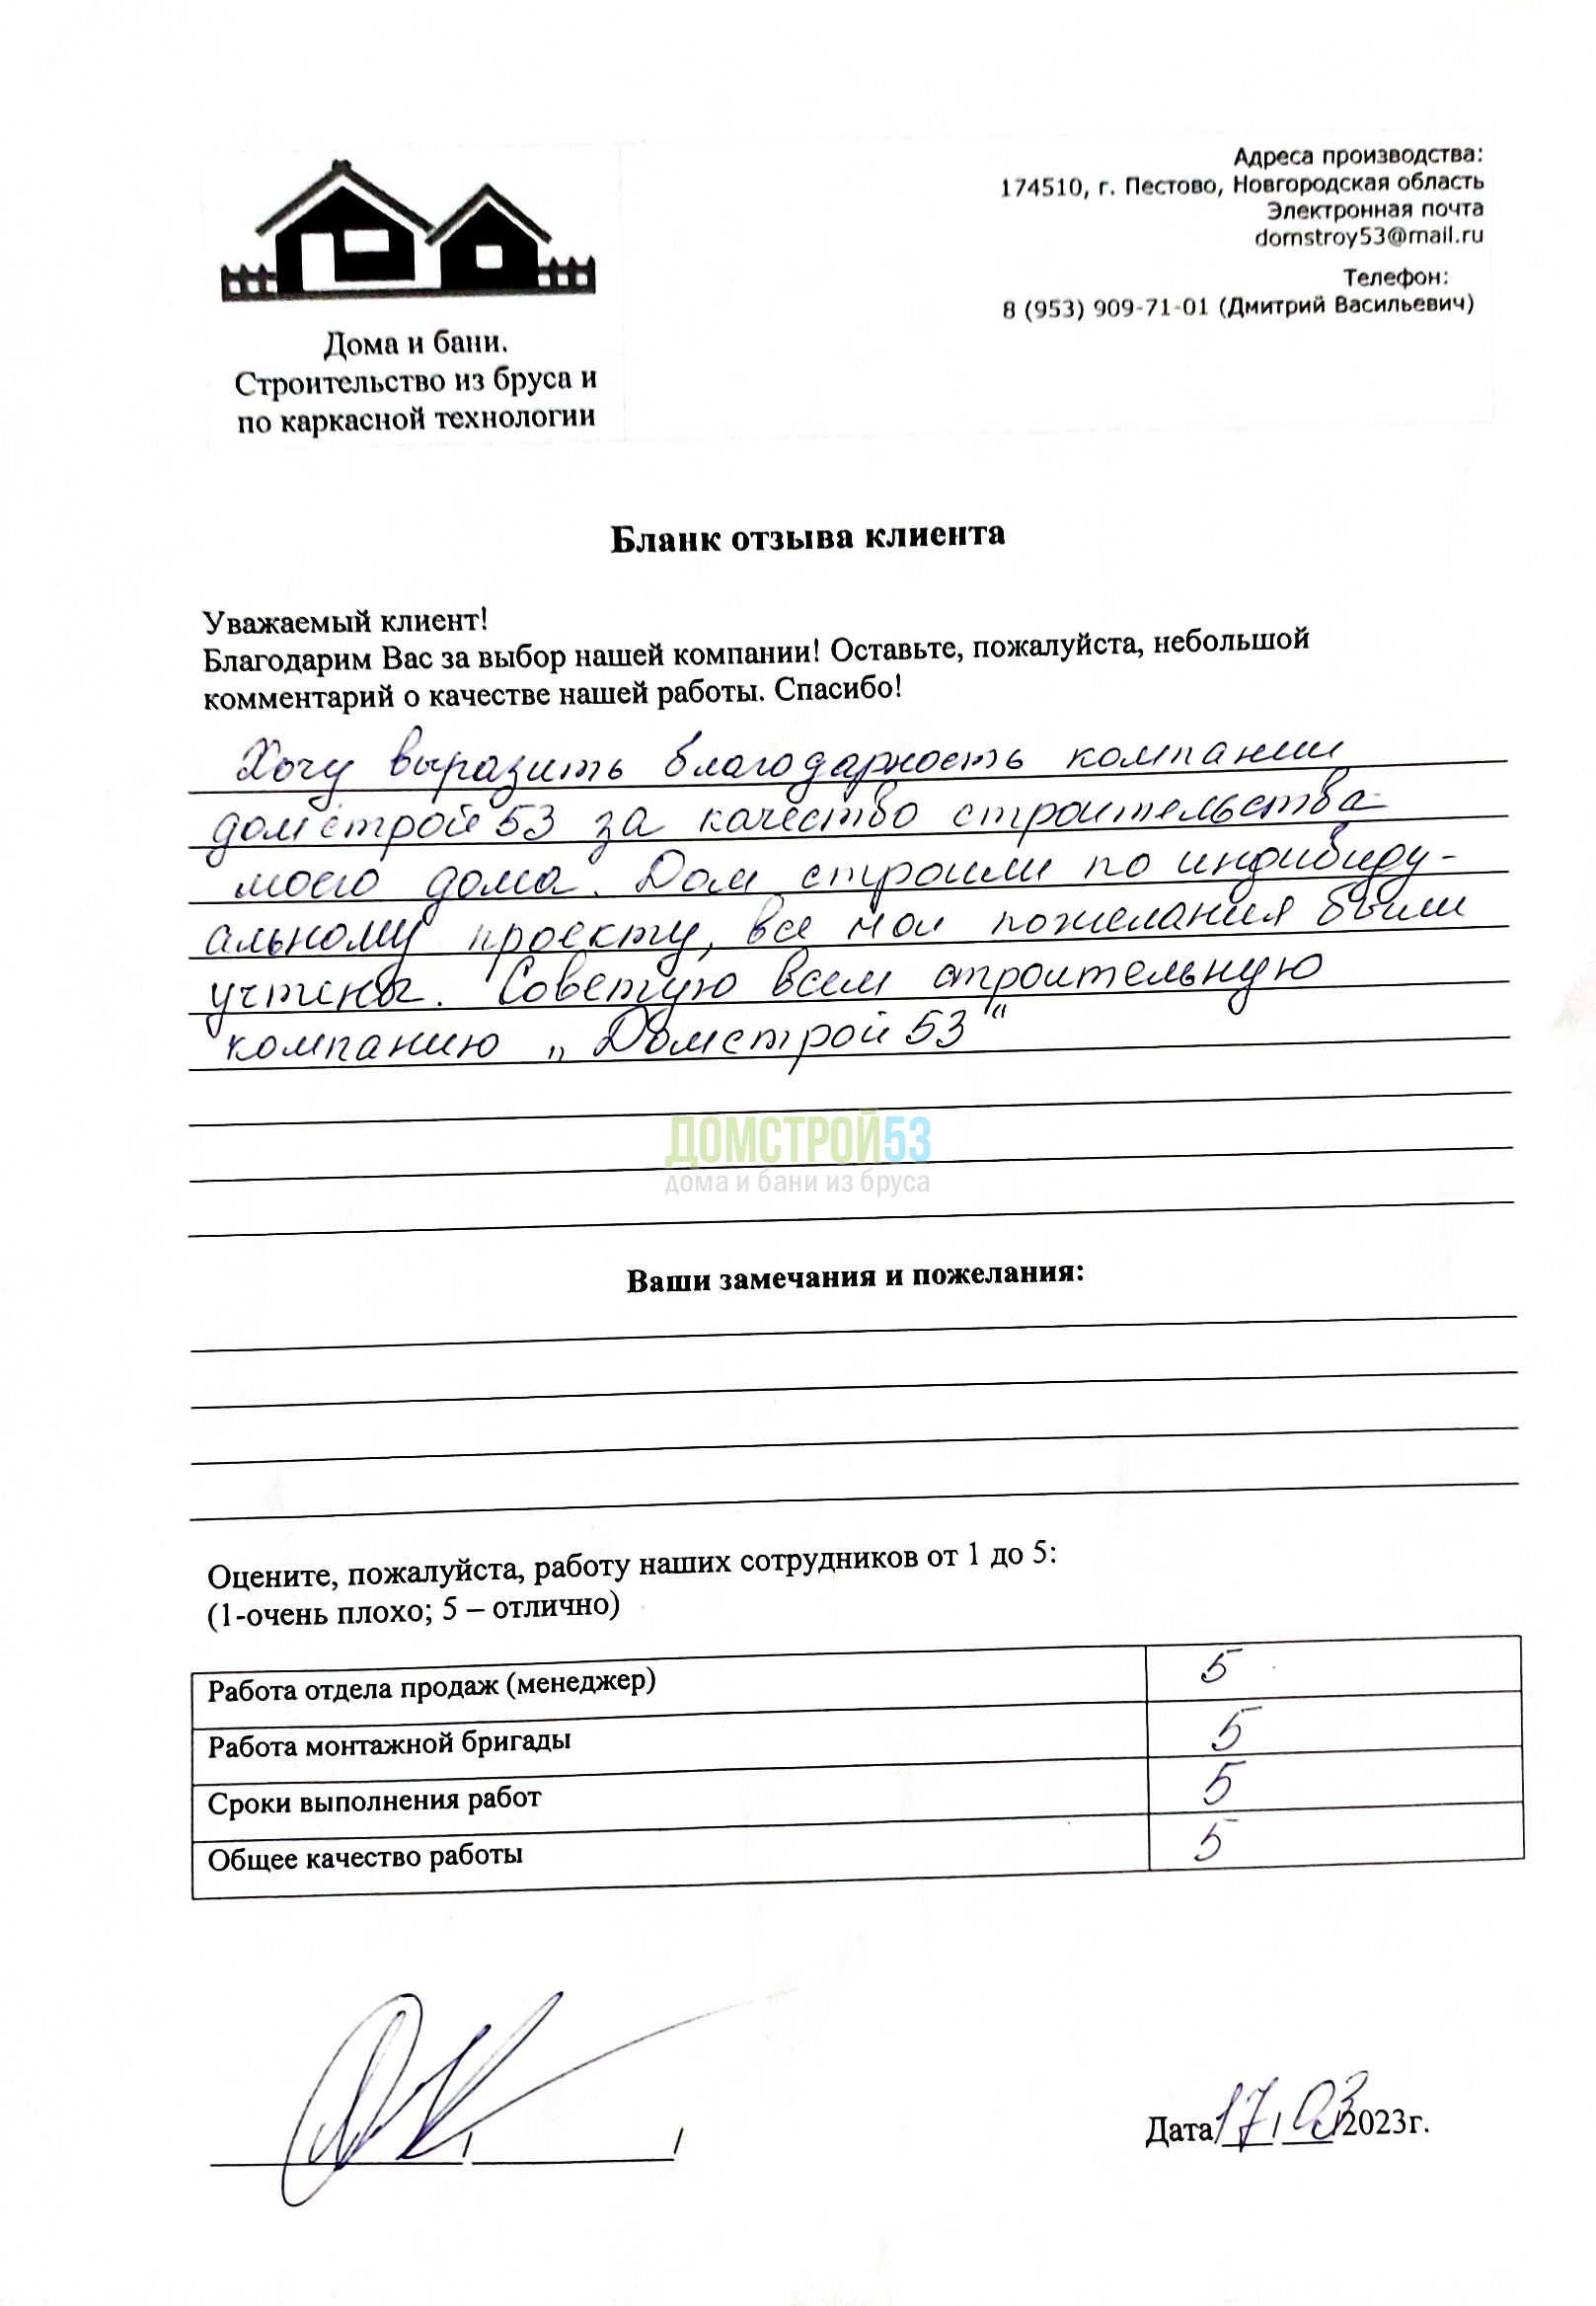 Адреса производства:
174510, г. Пестово, Новгородская область
Электронная почта
domstroy53@mail.ru
Телефон:
8 (953) 909-71-01 (Дмитрий Васильевич)
Дома и бани.
Строительство из бруса и
по каркасной технологии
Бланк отзыва клиента
Уважаемый клиент!
Благодарим Вас за выбор нашей компании! Оставьте, пожалуйста, небольшой
комментарий о качестве нашей работы. Спасибо!
Хочу выразить благодарность компании
домстрой53 за качество строительства
моего дома. Дом строили по индивиду-
альному проекту, все мои пожелания были
учтены. Советую всем строительную
компанию „Домстрой 53“
ДОМСТРОЙ53
дома и бани из бруса
Ваши замечания и пожелания:
Оцените, пожалуйста, работу наших сотрудников от 1 до 5:
(1-очень плохо; 5 – отлично)
Работа отдела продаж (менеджер) 5
Работа монтажной бригады 5
Сроки выполнения работ 5
Общее качество работы 5
Дата 17/03/2023г.